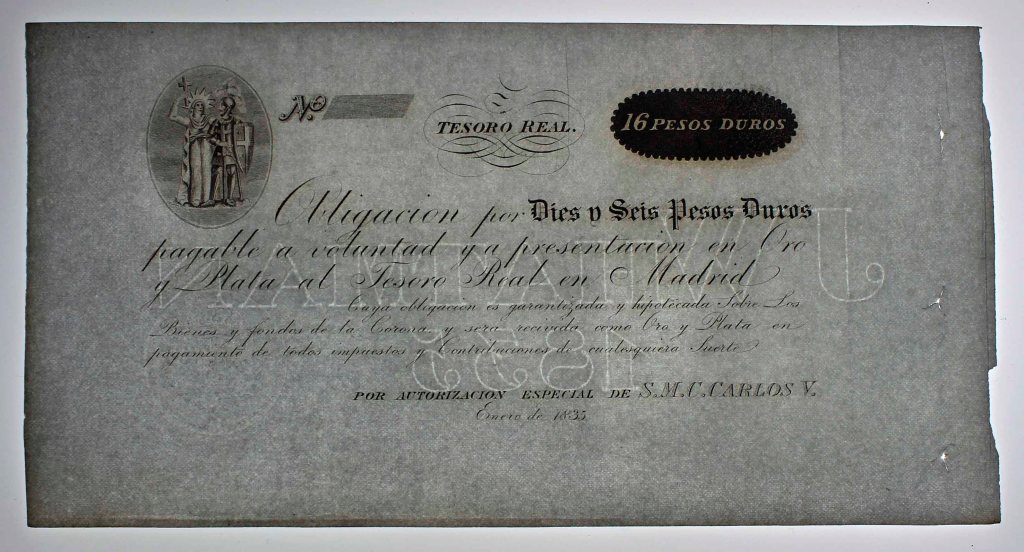 No.
TESORO REAL.
16 PESOS DUROS
Obligacion por Dies y Seis Pesos Duros
pagable a voluntad y a presentacion en Oro
y Plata al Tesoro Real en Madrid
Cuya obligacion es garantizada y hipotecada Sobre Los
Bienes y fondos de la Corona y será recivida como Oro y Plata en
pagamento de todos impuestos y Contribuciones de cualesquiera Suerte
POR AUTORIZACION ESPECIAL DE S.M.C. CARLOS V.
Enero de 1835
J WHATMAN
1833